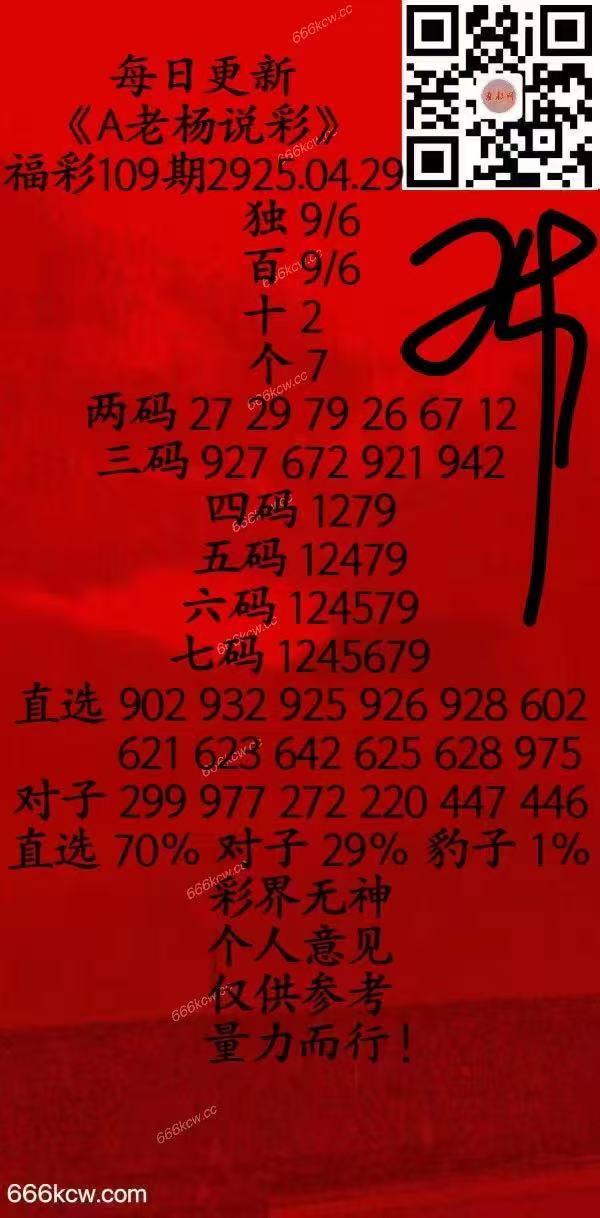 666kcw.cc
每日更新
《A老杨说彩》
666kcw.cc
福彩109期2925.04.29
独 9/6
666kcw.cc
百 9/6
十 2
个 7
666kcw.cc
两码 27 29 79 26 67 12
三码 927 672 921 942
666kcw.cc
四码 1279
五码 12479
六码 124579
666kcw.cc
七码 1245679
直选 902 932 925 926 928 602
666kcw.cc
621 623 642 625 628 975
对子 299 977 272 220 447 446
直选 70% 对子 29% 豹子 1%
666kcw.cc
彩界无神
个人意见
666kcw.cc
仅供参考
量力而行!
666kcw.cc
666kcw.com